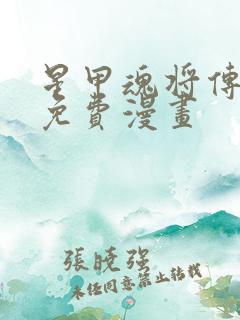 星甲魂将傳
免費漫畫
張曉強
未任同意禁止轉載